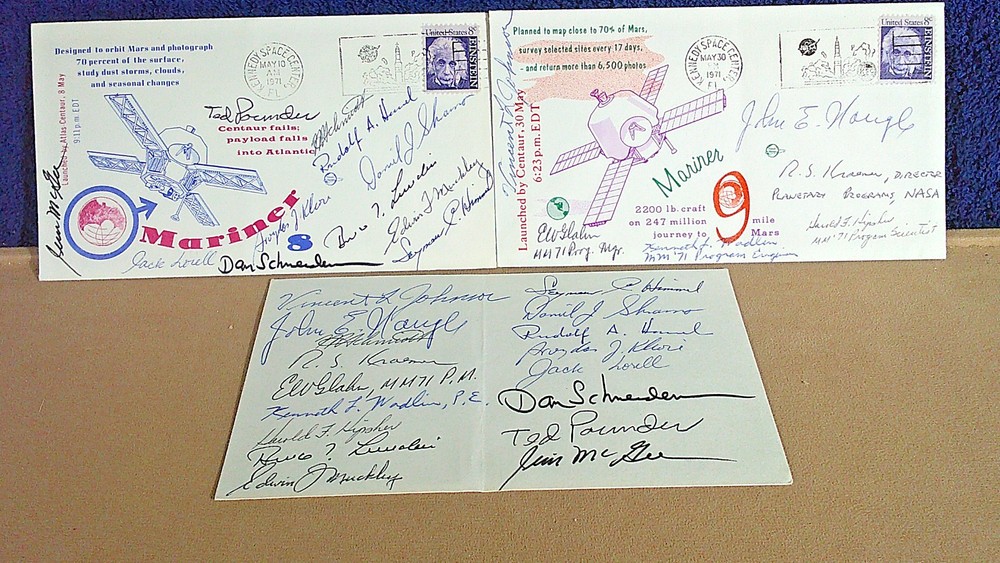 Designed to orbit Mars and photograph
70 percent of the surface,
study dust storms, clouds,
and seasonal changes
Launched by Atlas-Centaur, 8 May
9:11 p.m. EDT
KENNEDY SPACE CENTER
MAY 10
AM
1971
FL
United States 8c
EINSTEIN
Ted Pounder
Centaur fails;
payload falls
into Atlantic
Rudolf A. Hamel
Daniel J Shramo
Edwin J Muckley
Seymour C Himmel
Jim McGee
Mariner
8
Jack Lorell
Dan Schneiderman
Planned to map close to 70% of Mars,
survey selected sites every 17 days,
and return more than 6,500 photos
Launched by Centaur, 30 May
6:23 p.m. EDT
Vincent L Johnson
KENNEDY SPACE CENTER
MAY 30
1971
FL
United States 8c
EINSTEIN
John E. Naugle
Mariner
9
2200 lb. craft
on 247 million mile
journey to Mars
R. S. Kraemer, DIRECTOR
PLANETARY PROGRAMS, NASA
EW Glahn
MM 71 Prog. Mgr.
Kenneth L. Wadlin
MM '71 Program Engineer
Harold F. Hipsher
MM '71 Program Scientist
Vincent L Johnson
John E. Naugle
R. S. Kraemer
EW Glahn, MM71 P.M.
Kenneth L. Wadlin, P.E.
Harold F. Hipsher
Edwin J Muckley
Seymour C Himmel
Daniel J Shramo
Rudolf A. Hamel
Jack Lorell
Dan Schneiderman
Ted Pounder
Jim McGee